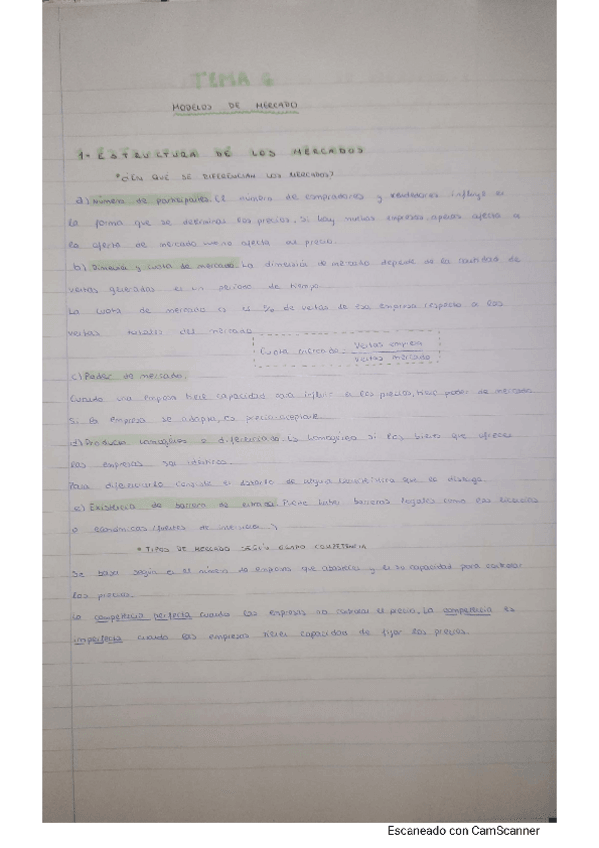 TEMA 6
MODELOS DE MERCADO
1. ESTRUCTURA DE LOS MERCADOS
• ¿EN QUÉ SE DIFERENCIAN LOS MERCADOS?
a) Número de participantes. El número de compradores y vendedores influye en
la forma que se determinan los precios. Si hay muchas empresas apenas afecta a
la oferta de mercado afecta al precio.
b) Dimensión y cuota de mercado. La dimensión de mercado depende de la cantidad de
ventas generadas en un período de tiempo.
La cuota de mercado es el % de ventas de esa empresa respecto a las
ventas totales del mercado.
Cuota mercado = ventas empresa
ventas mercado
c) Poder de mercado.
Cuando una empresa tiene capacidad para influir a los precios, tiene poder de mercado
Si la empresa se adapta, es precio-aceptante.
d) Producto homogéneo o diferenciado. Es homogéneo si los bienes que ofrecen
las empresas son idénticos.
Para diferenciarlo consiste el dotarlo de alguna característica que lo distinga.
e) Existencia de barrera de entrada. Puede haber barreras legales como las licencias
o económicas (fuertes de inversión)
• TIPOS DE MERCADO SEGÚN GRADO COMPETENCIA
Se basa según en el número de empresas que abastecen y en su capacidad para controlar
los precios.
La competencia perfecta cuando las empresas no controlan el precio. La competencia es
imperfecta cuando las empresas tienen capacidad de fijar los precios.
Escaneado con CamScanner